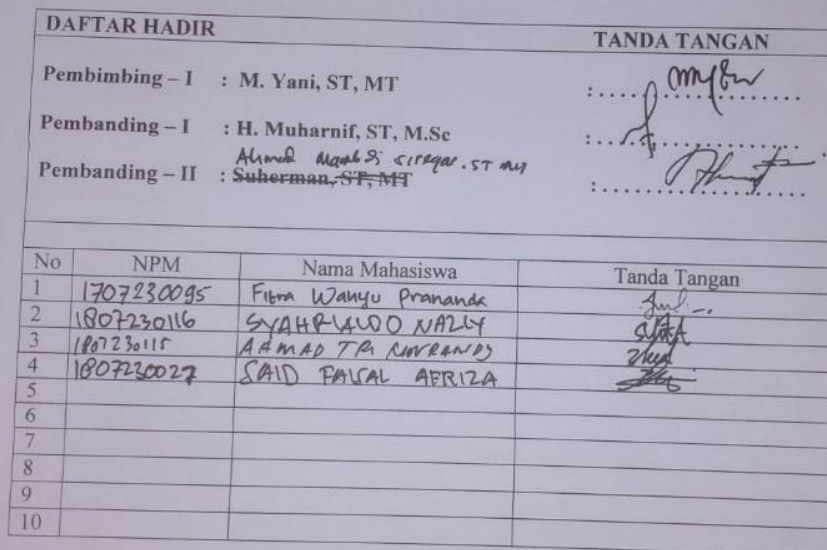 DAFTAR HADIR TANDA TANGAN
Pembimbing – I : M. Yani, ST, MT :....................
Pembanding – I : H. Muharnif, ST, M.Sc :....................
Ahmad Siregar. ST MT
Pembanding – II : Suherman, ST, MT :....................
No NPM Nama Mahasiswa Tanda Tangan
1 1707230095 Fitra Wahyu Prananda
2 1807230116 SYAHRIALDO NAZLY
3 1807230115 AHMAD TRI
4 1807230027 SAID FAISAL AFRIZA
5
6
7
8
9
10